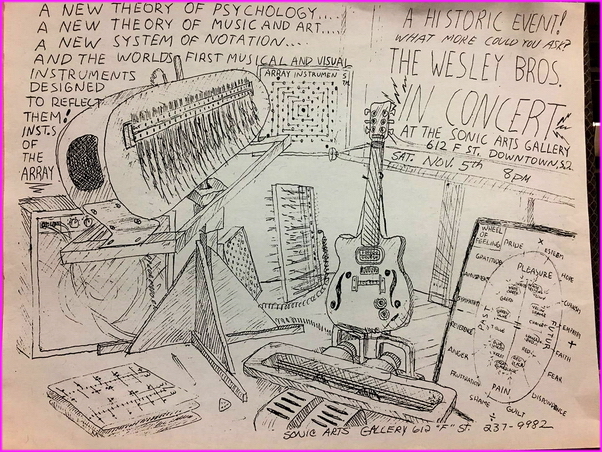 A NEW THEORY OF PSYCHOLOGY....
A NEW THEORY OF MUSIC AND ART....
A NEW SYSTEM OF NOTATION....
AND THE WORLDS FIRST MUSICAL AND VISUAL
INSTRUMENTS
DESIGNED
TO REFLECT
THEM!
INSTS
OF
THE
ARRAY
ARRAY INSTRUMEN
A HISTORIC EVENT!
WHAT MORE COULD YOU ASK?
THE WESLEY BROS.
IN CONCERT
AT THE SONIC ARTS GALLERY
612 F ST. DOWNTOWN, S.D.
SAT. NOV. 5th 8PM
WHEEL
OF
FEELING
PRIDE
ESTEEM
GRATITUDE
PLEASURE
HOPE
COURAGE
PAST
FUTURE
FAITH
ANGER
FEAR
FRUSTRATION
PAIN
SHAME
GUILT
SONIC ARTS GALLERY 612 "F" ST. 237-9982